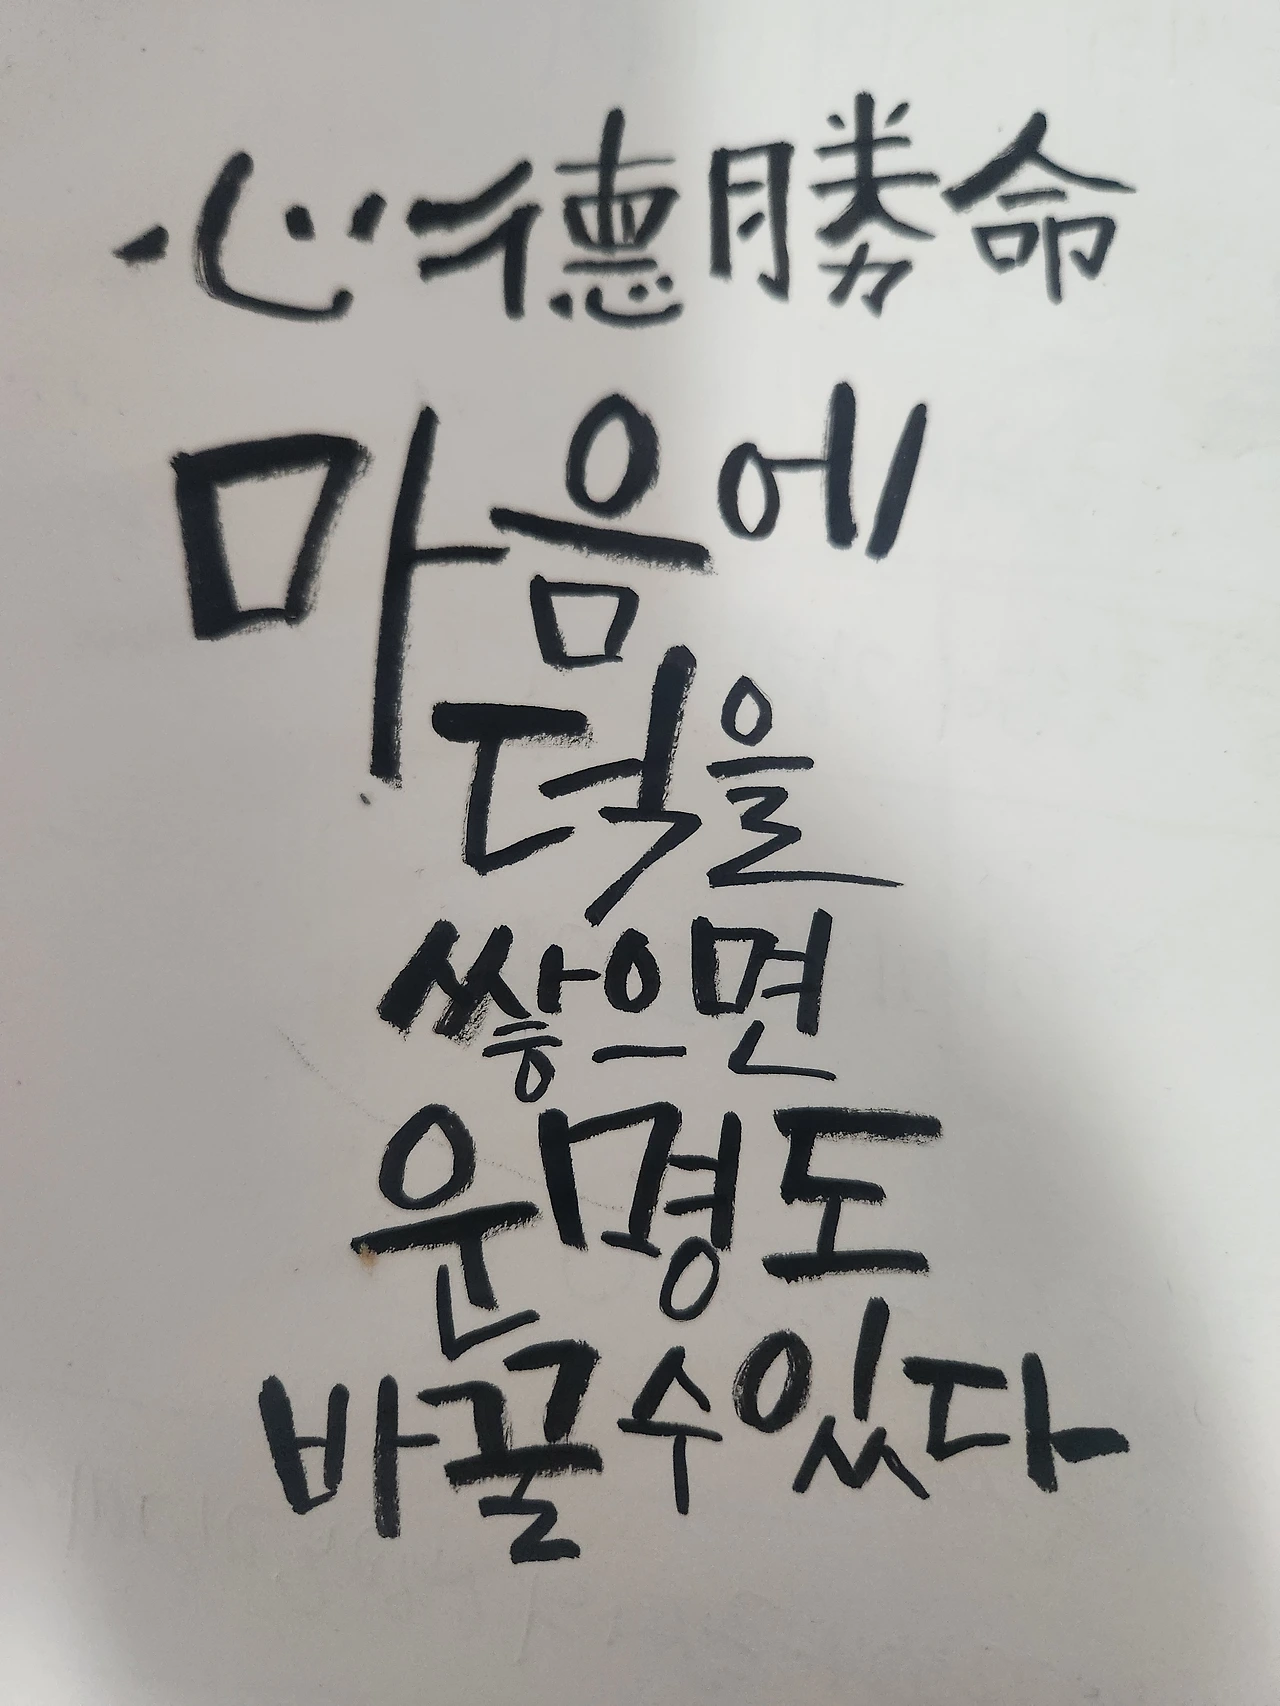 心德勝命
마음에
덕을
쌓으면
운명도
바꿀수있다